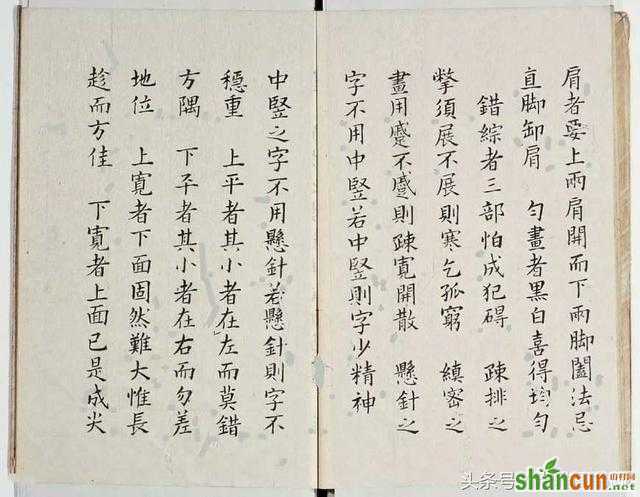 肩者要上兩肩開而下兩脚闔法忌
直脚卸肩 勻畫者黑白喜得均勻
錯綜者三部怕成犯碍 疎排之
撆須展不展則寒乞孤窮 縝密之
畫用蹙不蹙則疎寬開散 懸針之
字不用中竪若中竪則字少精神
中竪之字不用懸針若懸針則字不
穩重 上平者其小者在左而莫錯
方隅 下平者其小者在右而勿差
地位 上寬者下面固然難大惟長
趁而方佳 下寬者上面已是成尖
头条号
山村网
shancun.net